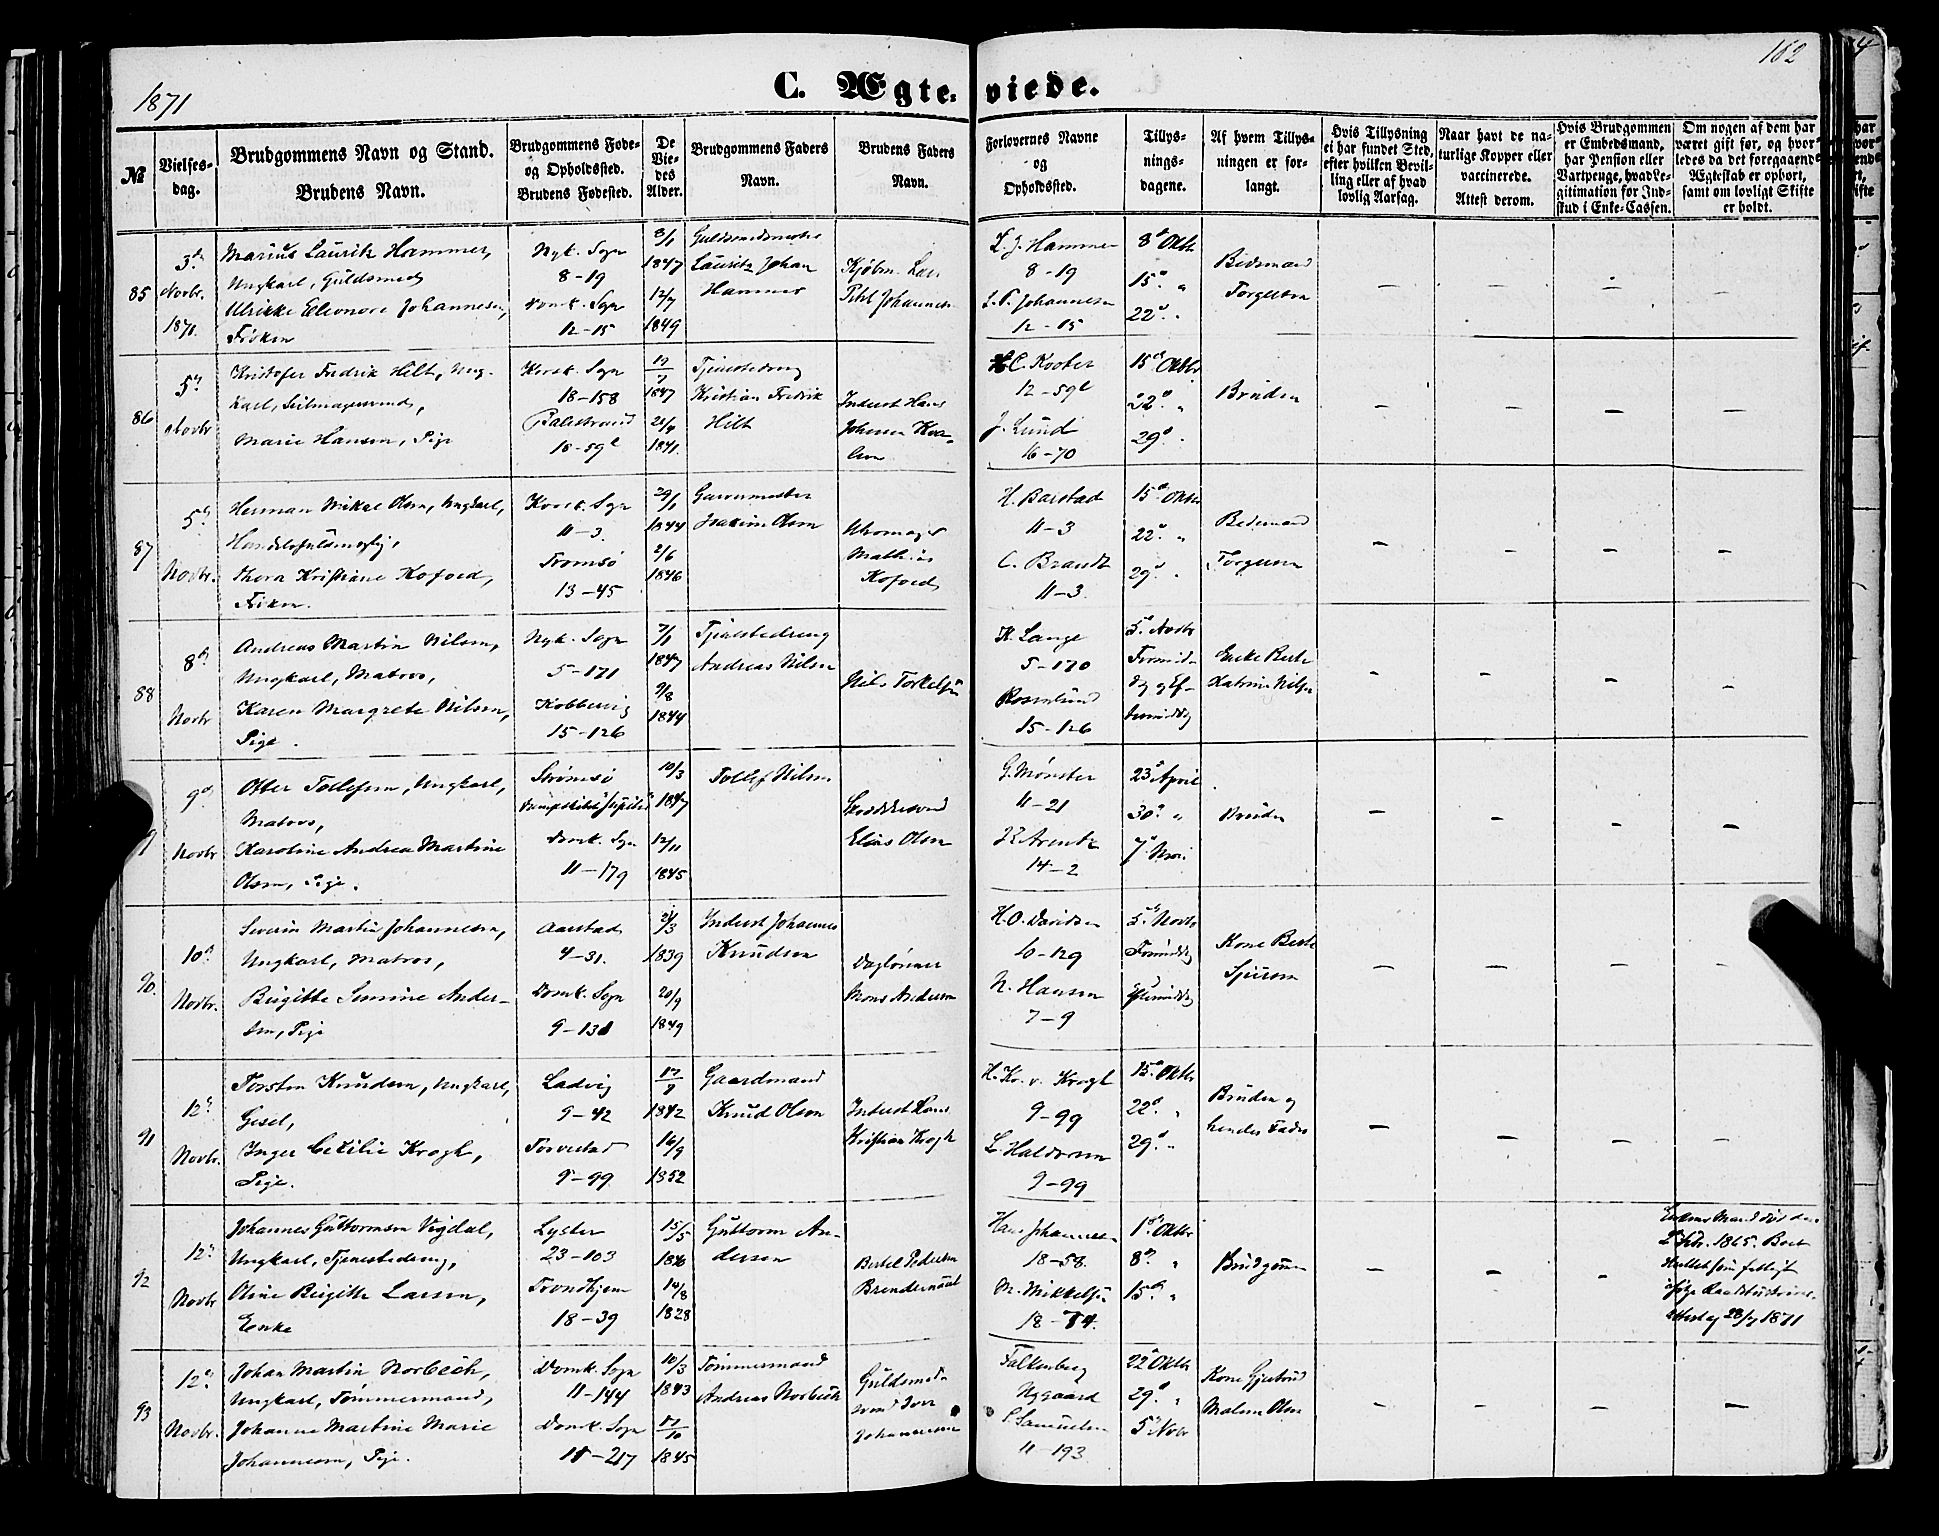 1871
C. Ægteviede.
162
№
Vielses-
dag.
Brudgommens Navn og Stand.
Brudens Navn.
Brudgommens Føde-
og Opholdssted.
Brudens Fødested.
De
Vie-
des
Alder.
Brudgommens Faders
Navn.
Brudens Faders
Navn.
Forlovernes Navne
og
Opholdssted.
Tillys-
nings-
dagene.
Af hvem Tillys-
ningen er for-
langt.
Hvis Tillysning
ei har fundet Sted,
efter hvilken Bevil-
ling eller af hvad
lovlig Aarsag.
Naar havt de na-
turlige Kopper eller
vaccinerede.
Attest derom.
Hvis Brudgommen
er Embedsmand,
har Pension eller
Vartpenge, hvad Le-
gitimation for Ind-
skud i Enke-Cassen.
Om nogen af dem har
været gift før, og hvor-
ledes da det foregaaende
Ægteskab er ophørt,
samt om lovligt Skifte
er holdt.
85
3d
Novbr.
1871.
Marius Lauritz Hammer,
Ungkarl, Guldsmed
Ulrikke Eleonore Johannesen,
Frøken
Nyk. Sogn
8-19
Domk. Sogn
12-15
8/1
1847
12/7
1849
Guldsmedmester
Lauritz Johan
Hammer
Kjøbm. Lars
Johannesen
L. J. Hammer
8-19
L. P. Johannesen
12-15
8d Oktbr
15d "
22d "
Bedemand
Torgersen
86
5d
Novbr
Kristofer Fredrik Hilt, Ung-
karl, Seilmagersvend,
Marie Hansen, Pige
Korsk. Sogn
18-158
Balestrand
18-59c
1847
1841.
Tjenestedreng
Kristian Fredrik
Hilt
Inderst Hans
Johnsen
12-59c
J. Lund
16-70
15d Oktbr
22d "
29d "
Bruden
87
5d
Novbr.
Herman Mikal Olsen, Ungkarl,
Handelsfuldmægtig,
Thora Kristiane Kofoed,
Frøken.
Korsk. Sogn
11-3.
Tromsø
13-45
29/1
1844
2/6
1846
Garvermester
Joakim Olsen
Uhrmager
Mathias
Kofoed
H. Barstad
11-3
C. Brandt
11-3.
15d Oktbr
22d "
29d "
Bedemand
Torgersen
88
8d
Novbr
Andreas Martin Nilsen,
Ungkarl, Matros,
Karen Margrete Nilsen,
Pige.
Nyk. Sogn
5-171
Kobbervig
15-126
7/1
1847
9/8
1844
Tjenestedreng
Andreas Nilsen
Nils Torkelsen
K. Lange
5-170
Rosenlund
15-126
5d Novbr
Formid-
dag og Ef-
termiddag
Enke Berte
Katrine Nilsen
9d
Novbr
Otter Tollefsen, Ungkarl,
Matros,
Karoline Andrea Martine
Olsen, Pige.
Strømsø
Dampskibet "Jupiter"
Domk. Sogn
11-179
10/3
1847
12/11
1845
Tollef Nilsen
Skræddersvend
Elias Olsen
G. Mønster
11-21
Arentz
14-2
23d April
30d "
7d Mai
Bruden
90.
10d
Novbr.
Severin Martin Johannesen,
Ungkarl, Matros,
Birgitte Simine Ander-
sen, Pige
Aarstad
4-31.
Domk. Sogn
9-131
21/3
1839
20/9
1849
Inderst Johannes
Knudsen
Dagløner
Mons Andersen
H. O. Davidsen
10-129
N. Hansen
7-9
5d Novbr
Formiddag
Eftermiddag
Kone Berte
91
12d
Novbr.
Torsten Knudsen, Ungkarl,
Gesel,
Inger Cecilie Krogh,
Pige.
Ladvig
9-42
Torvestad
9-99
1842
16/9
1852
Gaardmand
Knud Olson
Inderst Hans
Kristian Krogh
H. Kr. v. Krogh
9-99
L. Haldorsen
9-99
15d Oktbr
22d "
29d "
Bruden og
hendes Fader
92
12d
Novbr
Johannes Guttormsen Vigdal,
Ungkarl, Tjenestedreng,
Oline Birgitte Larsen,
Enke
Lyster
23-103
Trondhjem
18-39
15/5
1846
14/8
1828
Guttorm An-
dersen
Bertel Pedersen
Hans Johannesen
18-58.
M. Mikkelsen
18-74.
1d Oktbr
8d "
15d "
Brudgommen
Enkens Mand død den
1865. Boet
Attest af 28/7 1871
93
12d
Novbr.
Johan Martin Norbech,
Ungkarl, Tømmermand,
Johanne Martine Marie
Johannesen, Pige.
Domk. Sogn
11-144
Domk. Sogn
11-217
10/3
1843
17/10
1845
Tømmermand
Andreas Norbech
Guldsmed-
svend Iver
Johannesen
Falkenberg
Nygaard
C. Samuelsen
11-193
22d Oktbr
29d "
5d Novbr
Kone Gjertrud
Malene Olsen